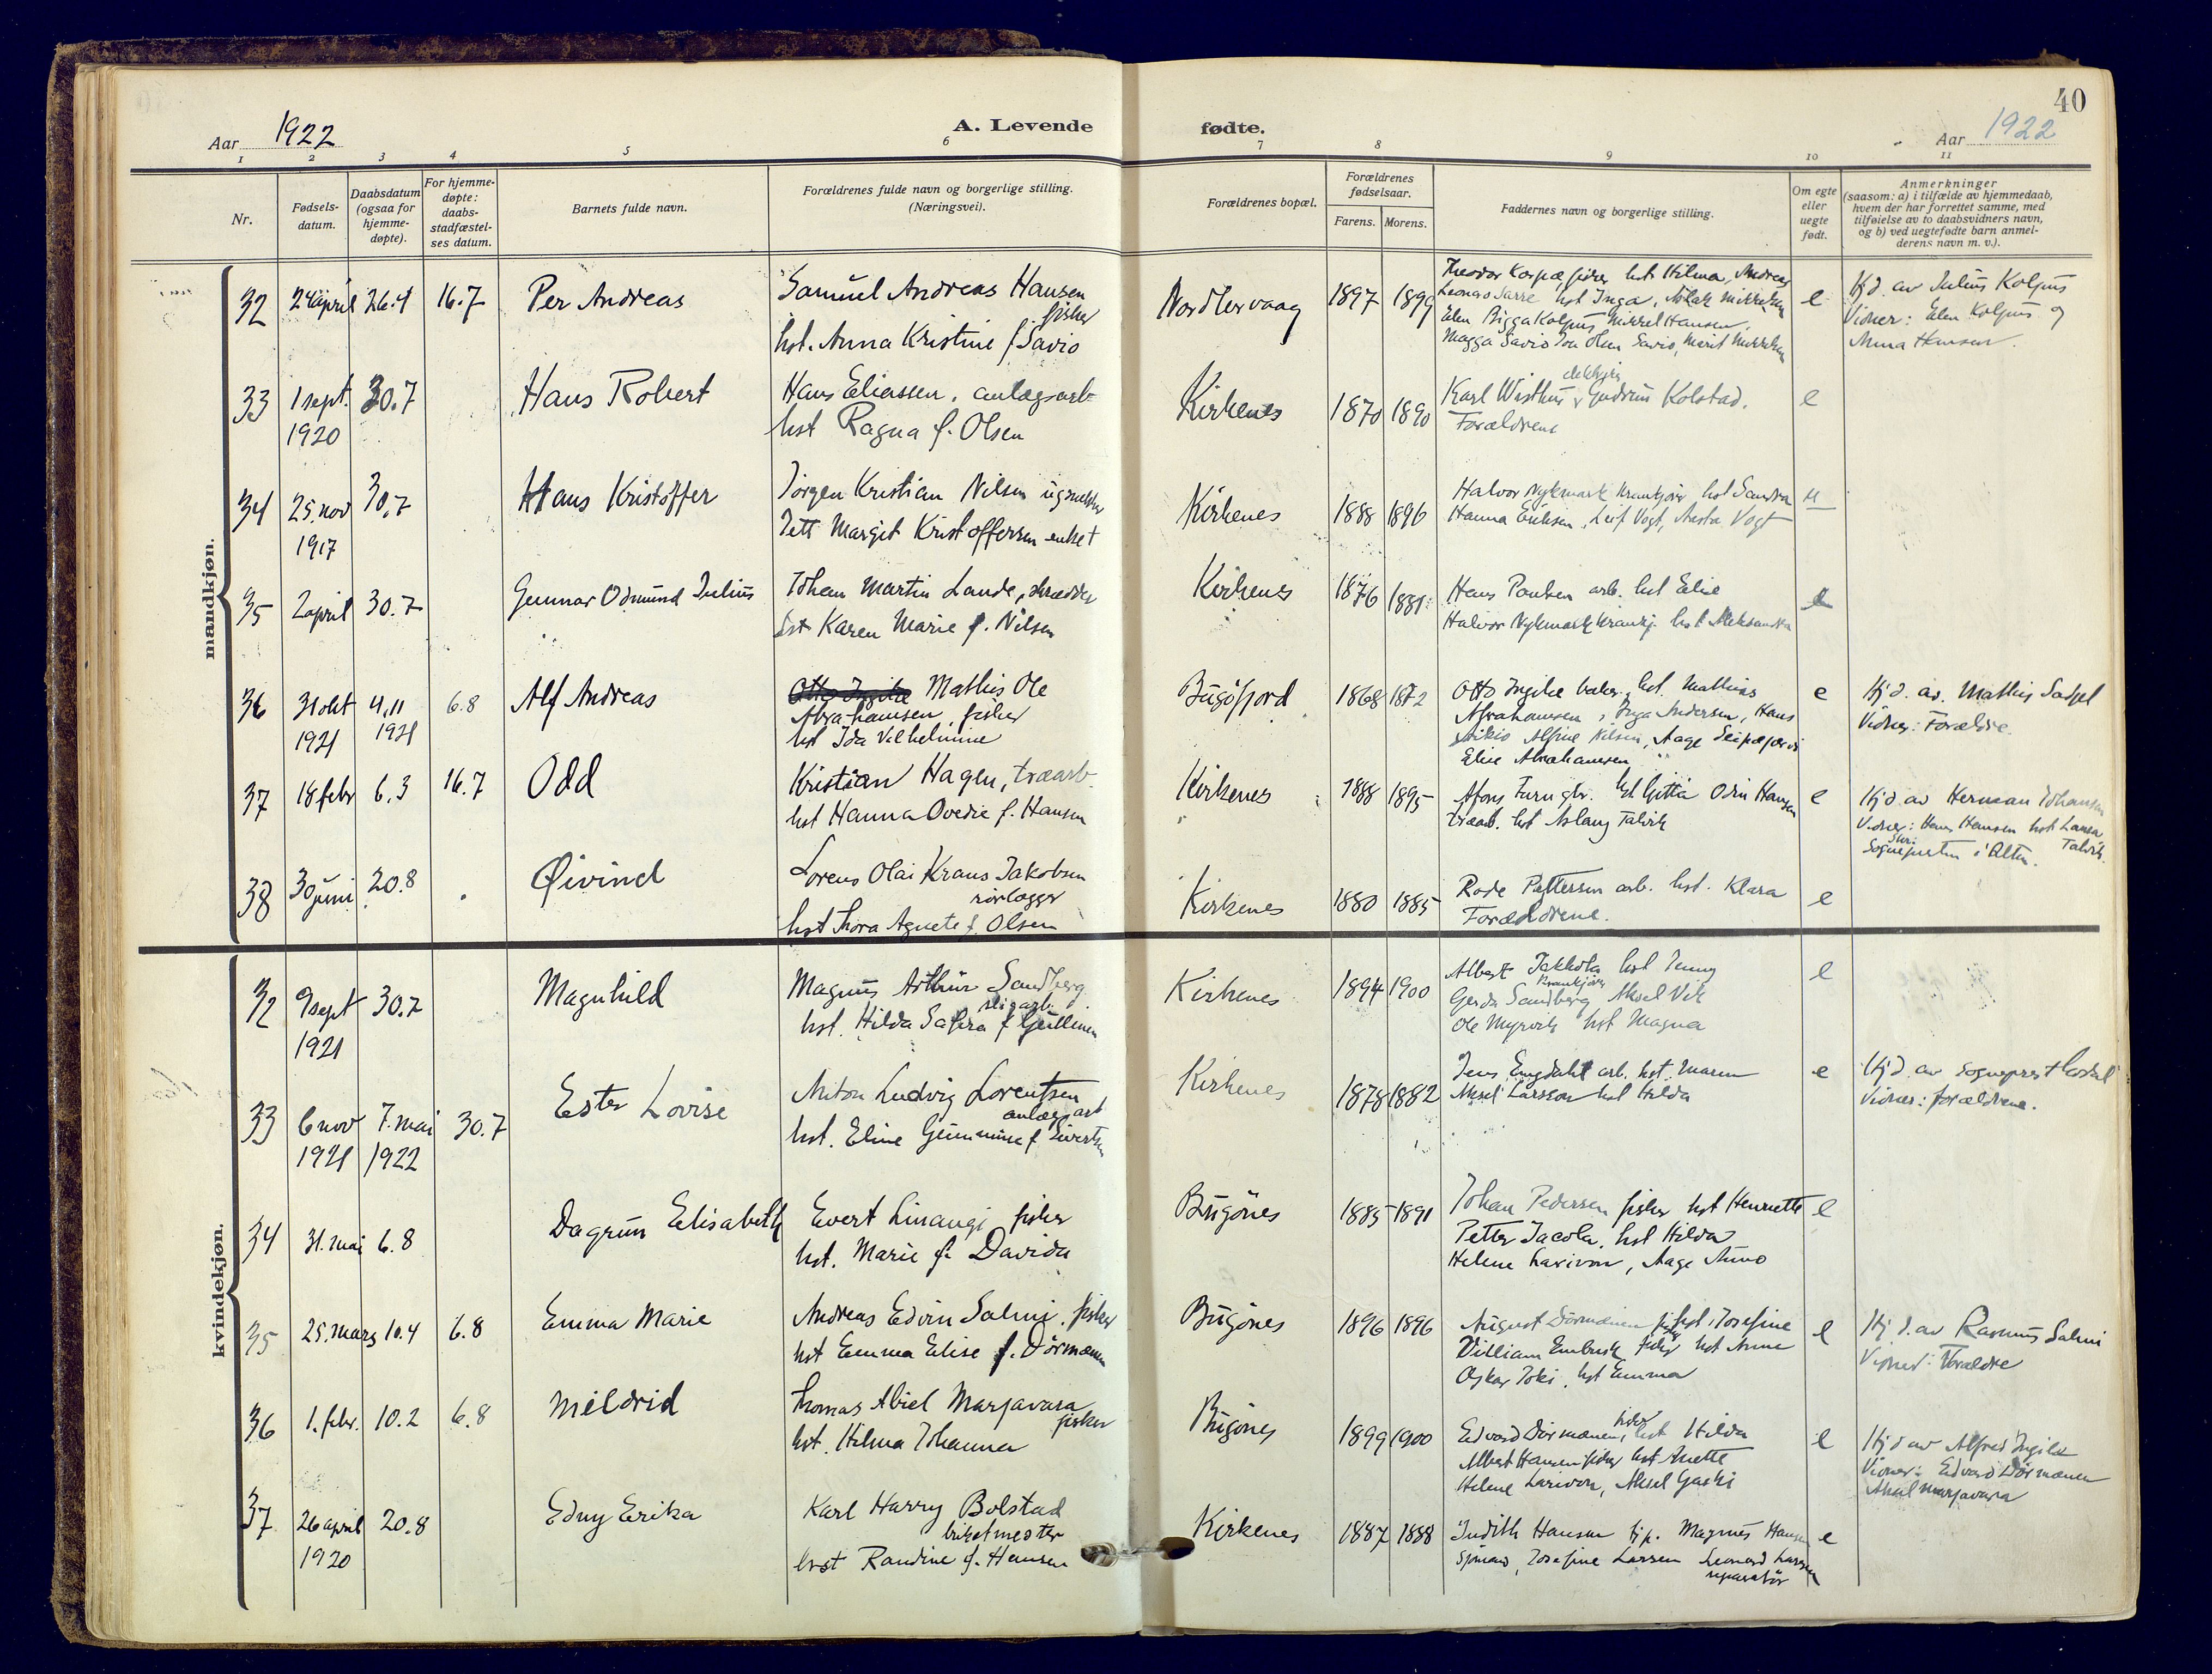 40
Aar 1922
A. Levende fødte.
Aar 1922
1 2 3 4 5 6 7 8 9 10 11
Nr.
Fødsels-
datum.
Daabsdatum
(ogsaa for
hjemme-
døpte).
For hjemme-
døpte:
daabs-
stadfæstel-
ses datum.
Barnets fulde navn.
Forældrenes fulde navn og borgerlige stilling.
(Næringsvei).
Forældrenes bopæl.
Forældrenes
fødselsaar.
Farens. Morens.
Faddernes navn og borgerlige stilling.
Om egte
eller
uegte
født.
Anmerkninger
(saasom: a) i tilfælde av hjemmedaab,
hvem der har forrettet samme, med
tilføielse av to daabsvidners navn,
og b) ved uegtefødte barn anmel-
derens navn m. v.).
mandkjøn.
32 24 april 26.4 16.7 Per Andreas
Samuel Andreas Hansen
fisker
hst. Anna Kristine f. Savio
Nordlervaag 1897 1899
Theodor Karpæ, fisker, hst Hilma, Andreas
Leonard Sarre hst Inga, Aslak Mikkelsen
Elen Bigga Kolpus, Mikkel Hansen,
Magga Savio Jon Olsen Savio, Marit Mikkelsen
e
Hj.d. av Julius Kolpus
Vidner: Elen Kolpus og
Anna Hansen.
33 1 sept. 30.7 Hans Robert
1920
Hans Eliassen, anlægsarb
hst Ragna f. Olsen
Kirkenes 1870 1890
Karl Wisthus, Gudrun Kolstad.
Forældrene
e
34 25. nov 30.7 Hans Kristoffer
1917
Jørgen Kristian Nilsen
Margit Kristoffersen enket
Kirkenes 1888 1896
Halvor Nykmark krankjører hst Sandra
Hanna Eriksen, Leif Vogt, Aasta Vogt
u
35 2 april 30.7 Gunnar Odmund Julius
Johan Martin Lande, skrædder
hst Karen Marie f. Nilsen
Kirkenes 1876 1881
Hans Paulsen arb. hst Elise
Halvor Nykmark krankj. hst Aleksandra
e
36 31 okt 4.11 6.8 Alf Andreas
1921 1921
Otto Ingilæ Mathis Ole
Abrahamsen, fisker
hst Ida Vilhelmine
Bugøfjord 1868 1872
Otto Ingilæ baker, hst. Mathias
Abrahamsen, Inga Andersen, Hans
Alfine Nilsen, Aage Seipæjærvi
Elise Abrahamsen
e
Hj.d. av. Mathis
Vidner: Forældre.
37 18 febr 6.3 16.7 Odd
Kristian Hagen, træarb
hst Hanna Ovedie f. Hansen
Kirkenes 1888 1895
hst Gitta Odin Hansen
træarb. hst Aslaug Talvik
e
Hj.d. av Herman Johansen
Vidner: Hans Hansen hst Laura
Talvik.
Sognepresten i Alten.
38 30 juni 20.8 Øivind
Lorens Olai Kraus Jakobsen
rørlægger
hst Thora Agnete f. Olsen
Kirkenes 1880 1885
Pettersen arb. hst. Klara
Forældrene.
e
kvindekjøn.
32 9 sept 30.7 Magnhild
1921
Magnus Arthur Sandberg
hst. Hilda Safira f
Kirkenes 1894 1900
Albert Jakkola hst Jenny
krankjører
Gerda Sandberg Aksel Vik
Ole Myrvik hst Magna
e
33 6 nov 7. mai 30.7 Ester Lovise
1921 1922
Anton Ludvig Lorentsen
anlægsarb
hst. Eline Gummine f. Sivertsen
Kirkenes 1878 1882
Jens Engdahl arb. hst. Maren
Aksel Larsson hst Hilda
e
Hj.d. av sogneprest
Vidner: forældrene.
34 31. mai 6.8 Dagrun Elisabeth
Evert Linangi fisker
hst. Marie f. Davida
Bugønes 1885 1891
Johan Pedersen fisker hst Henriette
Petter Jacola, hst Hilda
Helene Larivon, Aage Aino
e
35 25. mars 10.4 6.8 Emma Marie
Andreas Edvin Salmi, fisker
hst Emma Elise f. Dørmænen
Bugønes 1896 1896
August Dørmænen fisker hst. Josefine
William Embusk fisker hst Anne
Oskar Joki, hst Emma
e
Hj.d. av Rasmus Salmi
Vidner: Forældre
36 1. febr. 10.2 6.8 Mildrid
Thomas Abiel Marjavara
fisker
hst. Hilma Johanna
Bugønes 1899 1900
fisker
Edvard Dørmænen, hst Hilda
Albert Hansen fisker hst Anette
Helene Larivon, Aksel Gaski
e
Hj.d av Alfred Ingilæ
Vidner: Edvard Dørmænen
Aksel Marjavara
37 26 april 20.8 Edny Erika
1920
Karl Harry Bolstad
briketmester
hst Randine f. Hansen
Kirkenes 1887 1888
Judith Hansen tjp. Magnus Hansen
sjømand, Josefine Larsen Leonard Larsen
reparatør
e